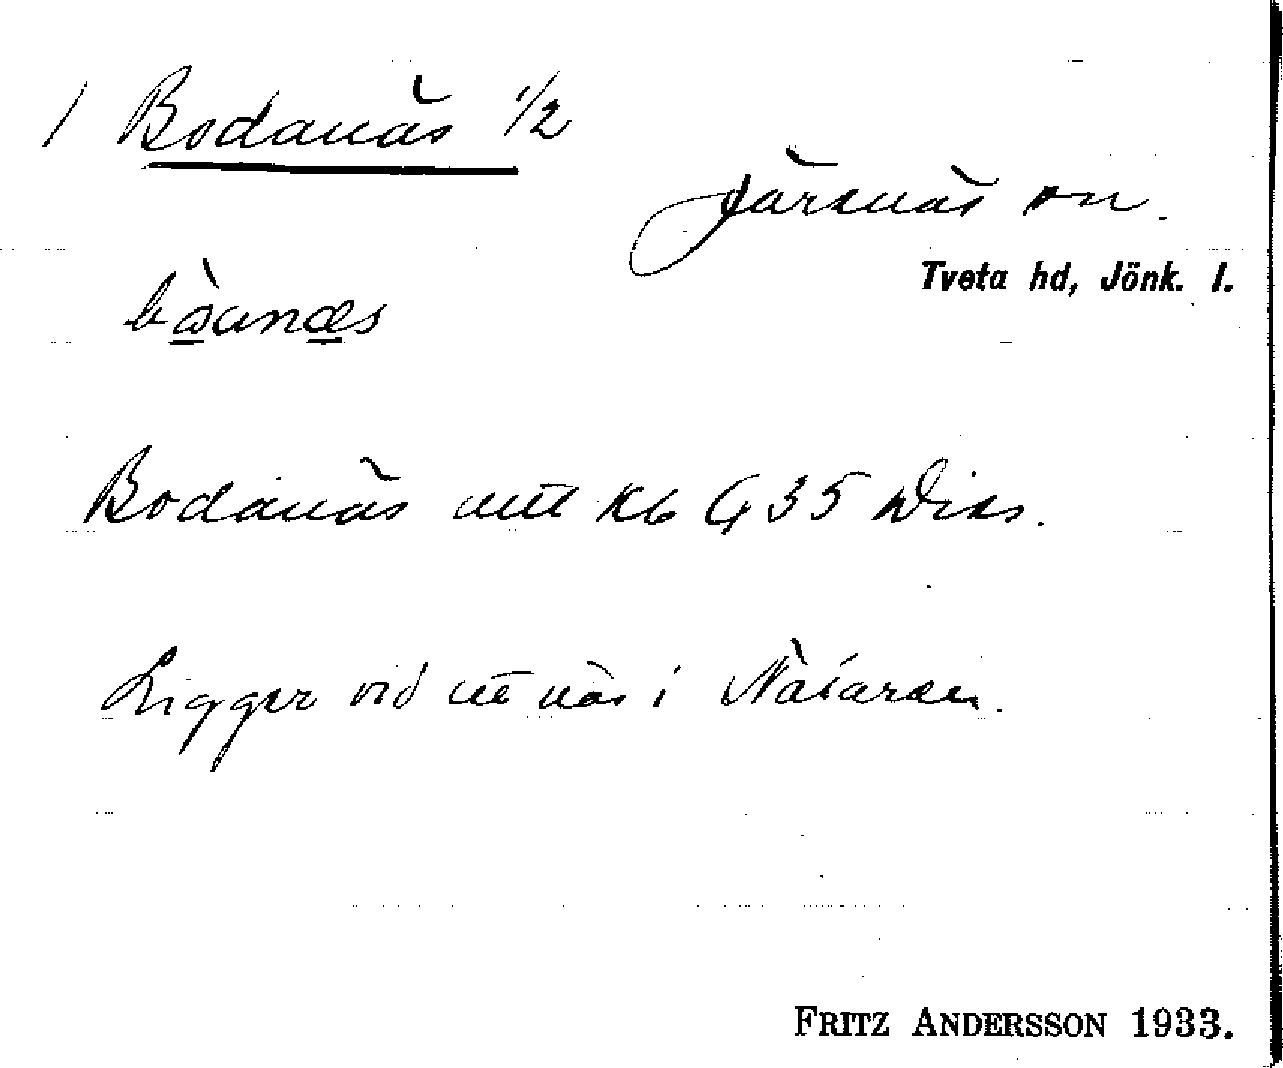 1 Bodanäs 1/2
Järsnäs sn.
Tveta hd, Jönk. l.
Bodanäs utt Kb G 35 Diss.
Ligger vid ett näs i Nätaren.
FRITZ ANDERSSON 1933.